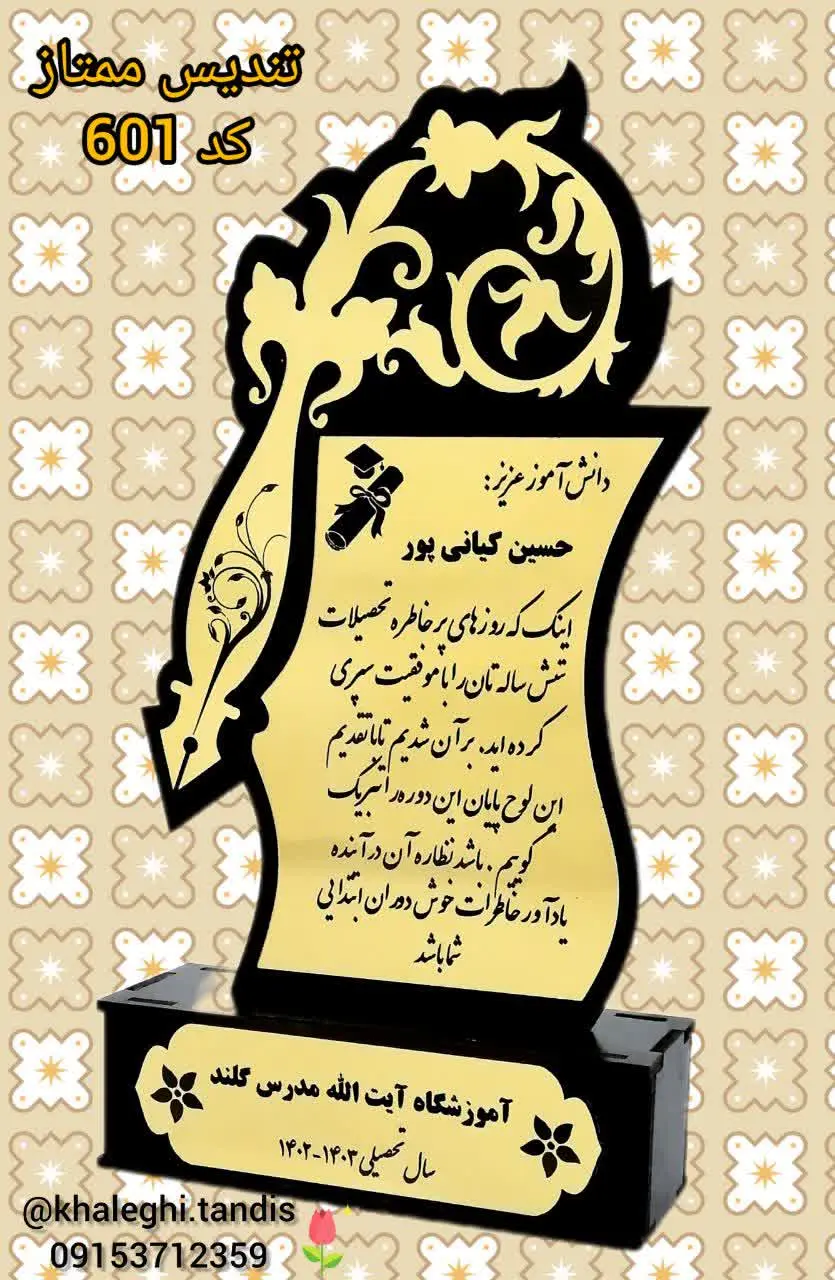 تندیس ممتاز
کد 601
دانش آموز عزیز:
حسین کیانی پور
اینک که روزهای پر خاطره تحصیلات
شش ساله تان را با موفقیت سپری
کرده اید، بر آن شدیم تا با تقدیم
این لوح پایان این دوره را تبریک
گوییم. باشد نظاره آن در آینده
یادآور خاطرات خوش دوران ابتدایی
شما باشد
آموزشگاه آیت الله مدرس گلند
سال تحصیلی ۱۴۰۳-۱۴۰۲
@khaleghi.tandis
09153712359